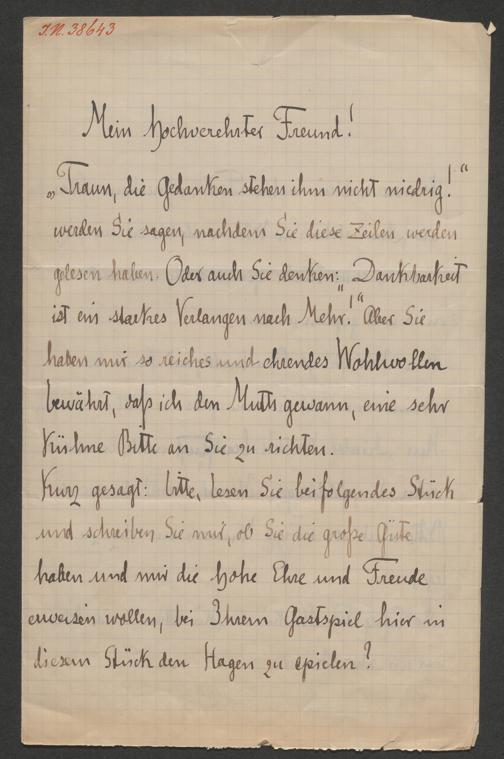 I.N. 38643
Mein hochverehrter Freund!
„Traun, die Gedanken stehen ihm nicht niedrig!“
werden Sie sagen, nachdem Sie diese Zeilen werden
gelesen haben. Oder auch Sie denken: „Dankbarkeit
ist ein starkes Verlangen nach Mehr!“ Aber Sie
haben mir so reiches und ehrendes Wohlwollen
bewährt, daß ich den Muth gewann, eine sehr
kühne Bitte an Sie zu richten.
Kurz gesagt: bitte, lesen Sie beifolgendes Stück
und schreiben Sie mir, ob Sie die große Güte
haben und mir die hohe Ehre und Freude
erweisen wollen, bei Ihrem Gastspiel hier in
diesem Stück den Hagen zu spielen?